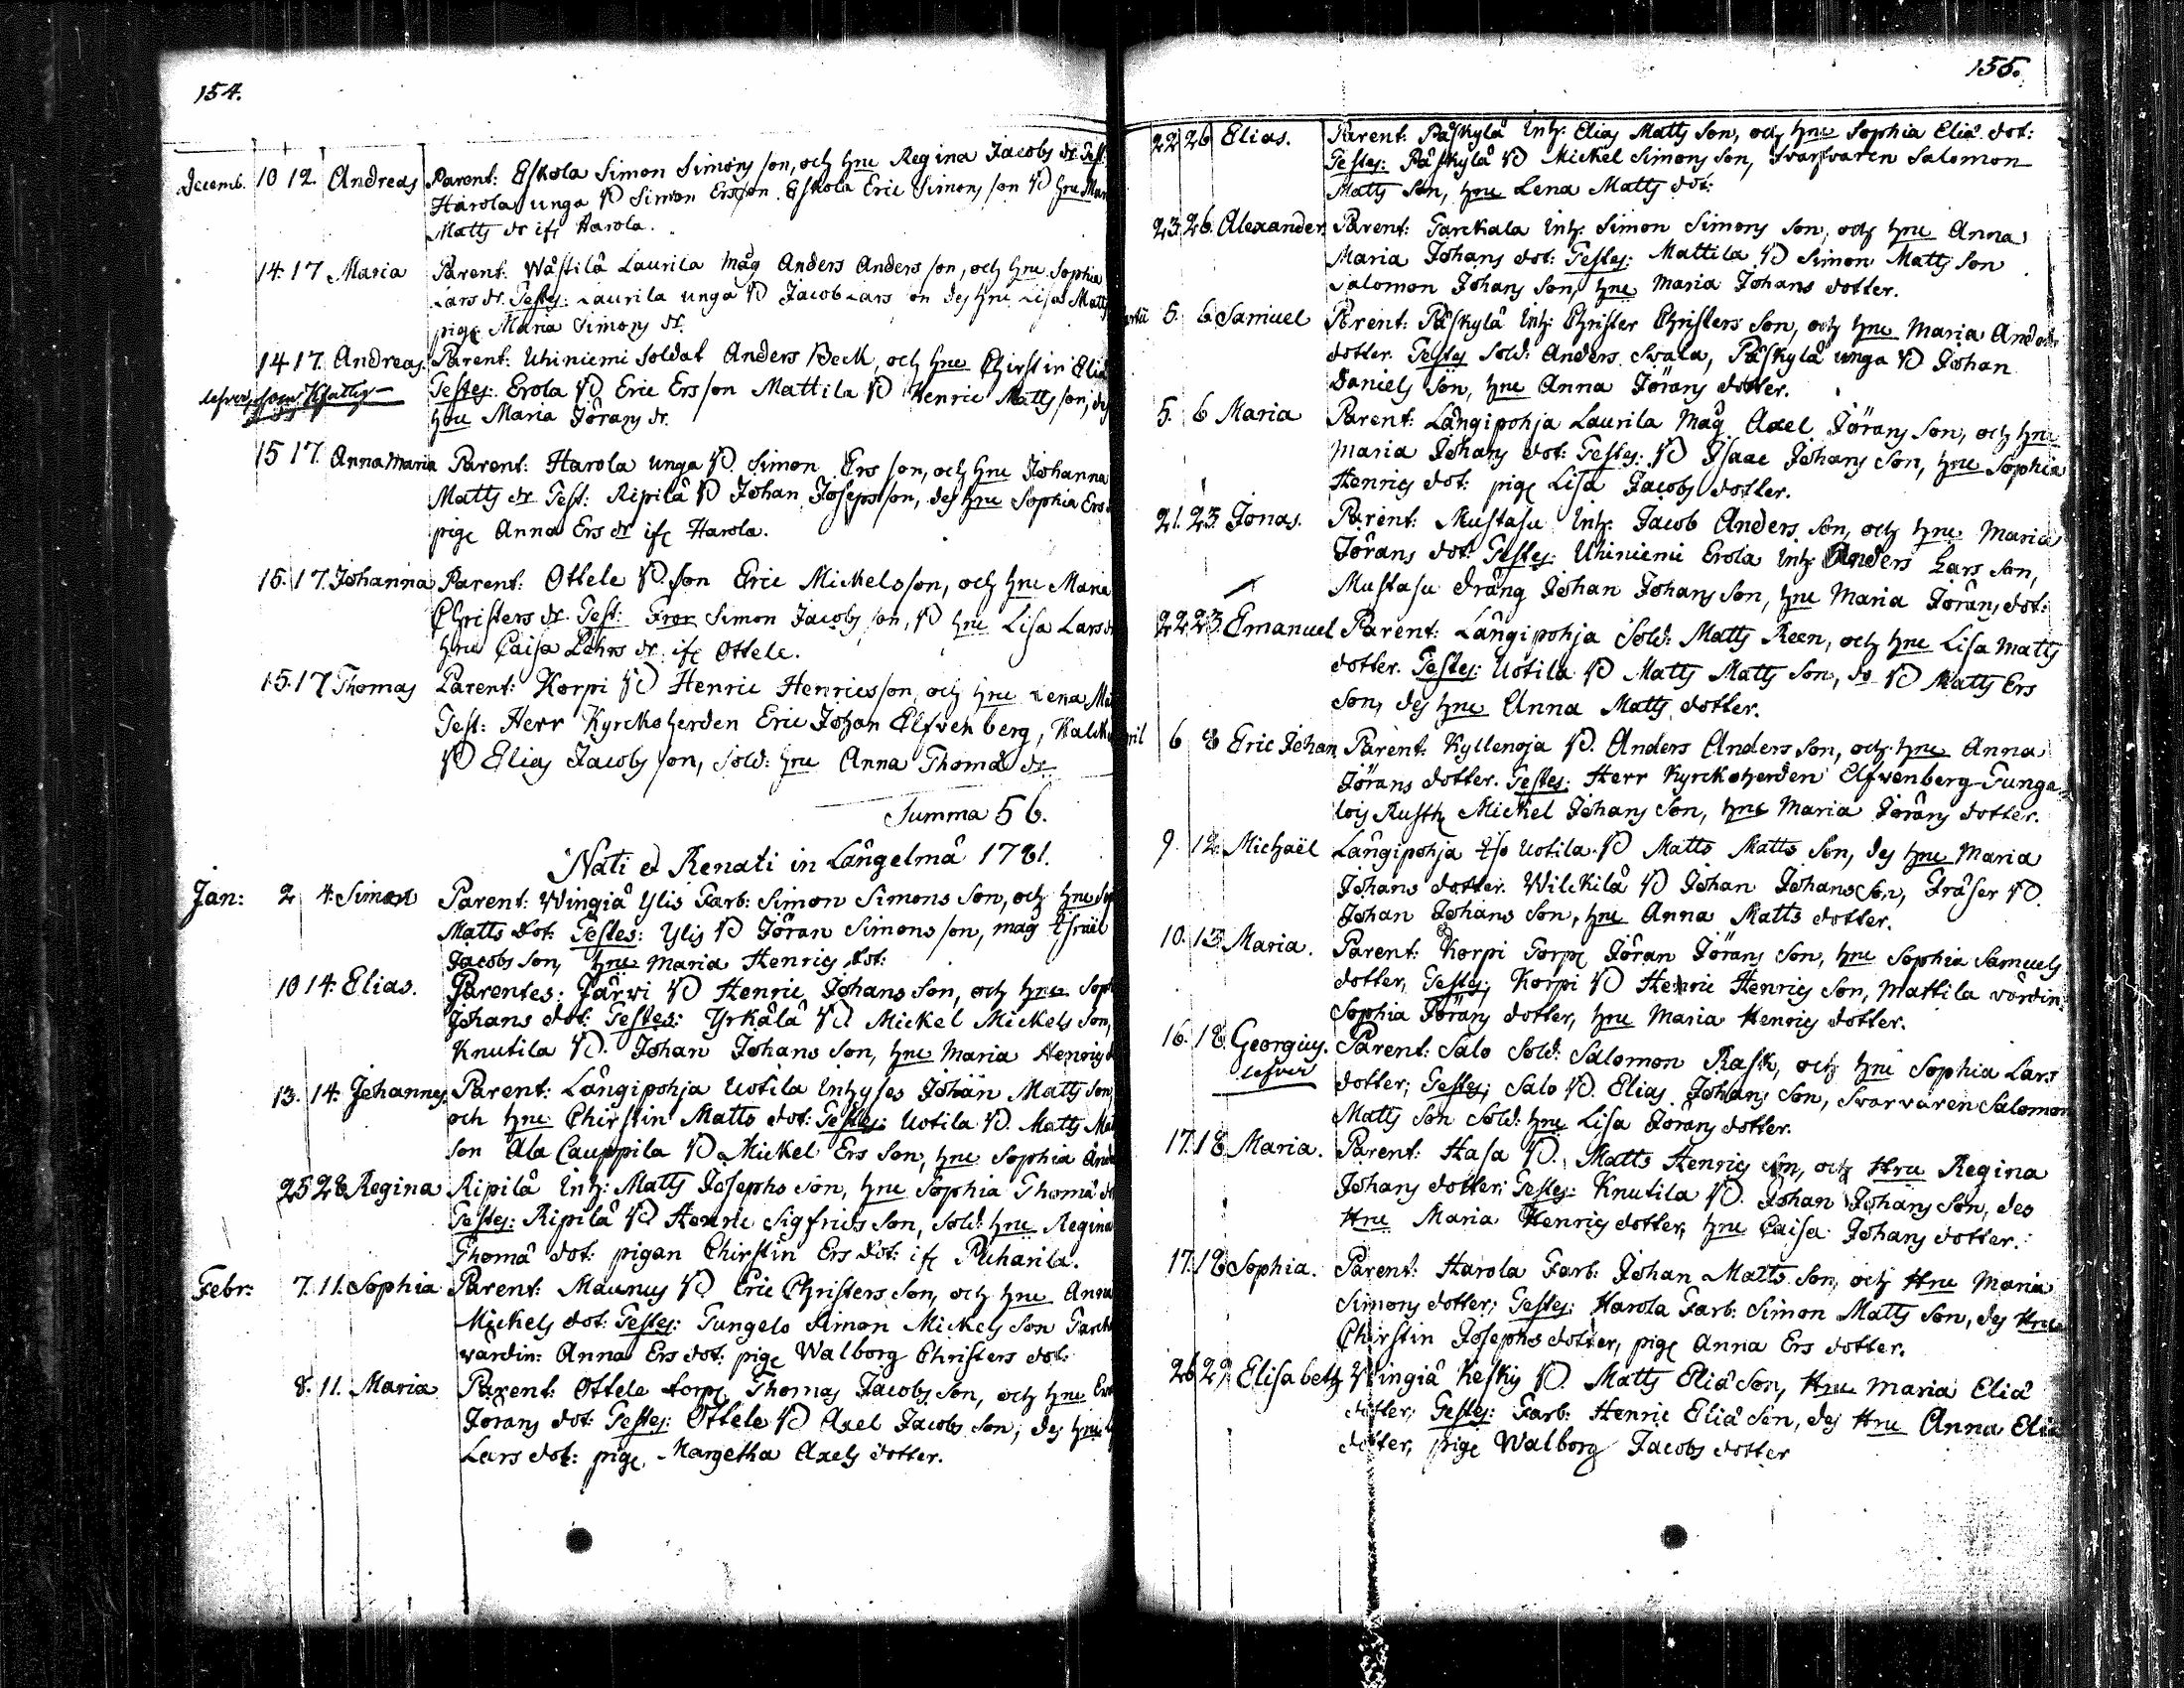 154.
Decemb. 10 12. Andreas Parent: Eskola Simon Simons son, och hru Regina Jacobs dr Test:
Harola unga B Simon Ersson. Eskola Eric Simons son B hru
Matts dr ifr Harola.
14. 17 Maria Parent: Wästilä Laurila Måg Anders Anders son, och hru Sophia
Lars dr. Testes: Laurila unga B Jacob Lars son des hru Lisa Matts
pigc Maria Simons dr.
14 17. Andreas. Parent: Uhiniemi Soldat Anders Beck, och hru Chirstin Eliæ
Testes: Erola B Eric Ers son Mattila B Henric Matts son, des
hru Maria Jörans dr.
15 17. Anna Maria Parent: Harola unga B. Simon Ers son, och hru Johanna
Matts dr Test: Ripilä B Johan Josepsson, des hru Sophia Ers
pigc Anna Ers dr ifr Harola.
15. 17. Johanna Parent: Ottele B. son Eric Mickelsson, och hru Maria
Christers dr. Test: Simon Jacobs son, B hru Lisa Lars
hru Caisa dr. ifr Ottele.
15. 17 Thomas Parent: Korpi B Henric Henricsson, och hru Lena
Test: Herr Kyrckoherden Eric Johan Elfvenberg,
B Elias Jacobs son, Sold: hru Anna Thomæ dr
Summa 56.
Nati et Renati in Längelmä 1781.
Jan: 2 4. Simon Parent: Wingiä Ylis Farb: Simon Simons Son, och hru
Matts Dot: Testes: Ylis B Jöran Simons son, mag Israël
Jacobs Son, hru Maria Henrics Dot:
10 14. Elias. Parentes: Järvi B Henric Johans Son, och hru
Johans dot: Testes: Yrkälä B Mickel Mickels Son,
Knutila B. Johan Johans Son, hru Maria Henrics
13. 14. Johannes. Parent: Längipohja Uotila Inhyses Johan Matts Son
och hru Chirstin Matts dot: Testes: Uotila B. Matts
Son Ala Cauppila B Mickel Ers Son, hru Sophia
25 28 Regina Ripilä Inh: Matts Josephs Son, hru Sophia Thomæ
Testes: Ripilä B Henric Sigfrids Son, Sold: hru Regina
Thomæ dot: pigan Chirstin Ers dot: ifr Puharila.
Febr: 7. 11. Sophia Parent: Maunus B Eric Christers Son, och hru Anna
Mickels dot: Testes: Tungelo Simon Mickels Son
vårdin: Anna Ers dot: pigc Walborg Christers dot:
8. 11. Maria Parent: Ottele torpc Thomas Jacobs Son, och hru
Jörans dot: Testes: Ottele B Axel Jacobs Son, des hru
Lars dot: pigc Margetha Axels dotter.
155.
22 26 Elias. Parent: Päskylä Inh: Elias Matts Son, och hru Sophia Eliæ dot:
Testes: Päskylä B Mickel Simons Son, Svarfvaren Salomon
Matts Son, hru Lena Matts dot:
23. 26. Alexander Parent: Tarckala Inh: Simon Simons Son, och hru Anna
Maria Johans dot: Testes: Mattila B Simon Matts Son
Salomon Johans Son, hru Maria Johans dotter.
5. 6 Samuel Parent: Päskylä Inh: Christer Christers Son, och hru Maria Anders
dotter. Testes Sold: Anders Svala, Päskylä unga B Johan
Daniels Son, hru Anna Jörans dotter.
5. 6 Maria Parent: Längipohja Laurila Måg Axel Jörans Son, och hru
Maria Johans dot: Testes: B Isaac Johans Son, hru Sophia
Henrics dot: pigc Lisa Jacobs dotter.
21. 23. Jonas. Parent: Mustasu Inh: Jacob Anders Son, och hru Maria
Jörans dot: Testes: Uhiniemi Erola Inh: Anders Lars Son,
Mustasu dräng Johan Johans Son, hru Maria Jörans dot:
22. 23. Emanuel Parent: Längipohja Sold: Matts Reen, och hru Lisa Matts
dotter. Testes: Uotila B Matts Matts Son, do B Matts Ers
Son, des hru Anna Matts dotter.
6 8 Eric Johan Parent: Kyllenoja B. Anders Anders Son, och hru Anna
Jörans dotter. Testes: Herr Kyrckoherden Elfvenberg Tunga
lois Rusth Mickel Johans Son, hru Maria Jörans dotter.
9. 12. Michaël Längipohja Uotila B Matts Matts Son, des hru Maria
Johans dotter. Wilckilä B Johan Johans Son, Fräser B
Johan Johans Son, hru Anna Matts dotter.
10. 15. Maria. Parent: Korpi Torpc Jöran Jörans Son, hru Sophia Samuels
dotter, Testes: Korpi B Henric Henrics Son, Mattila vårdin
Sophia Jörans dotter, hru Maria Henrics dotter.
16. 18. Georgius. Parent: Salo Sold: Salomon Rask, och hru Sophia Lars
dotter; Testes; Salo B. Elias Johans Son, Svarvaren Salomon
Matts Son Sold: hru Lisa Jörans dotter.
17. 18 Maria. Parent: Hasa B. Matts Henrics Son, och Hru Regina
Johans dotter; Testes: Knutila B. Johan Johans Son, des
Hru Maria Henrics dotter, hru Caisa Johans dotter.
17. 18 Sophia. Parent: Harola Farb: Johan Matts Son, och Hru Maria
Simons dotter; Testes: Harola Farb: Simon Matts Son, des Hru
Chirstin Josephs dotter, pigc Anna Ers dotter.
26 29. Elisabeth Wingiä Keskis B. Matts Eliæ Son, Hru Maria Eliæ
dotter; Testes: Farb: Henric Eliæ Son, des Hru Anna Eliæ
dotter, pigc Walborg Jacobs dotter